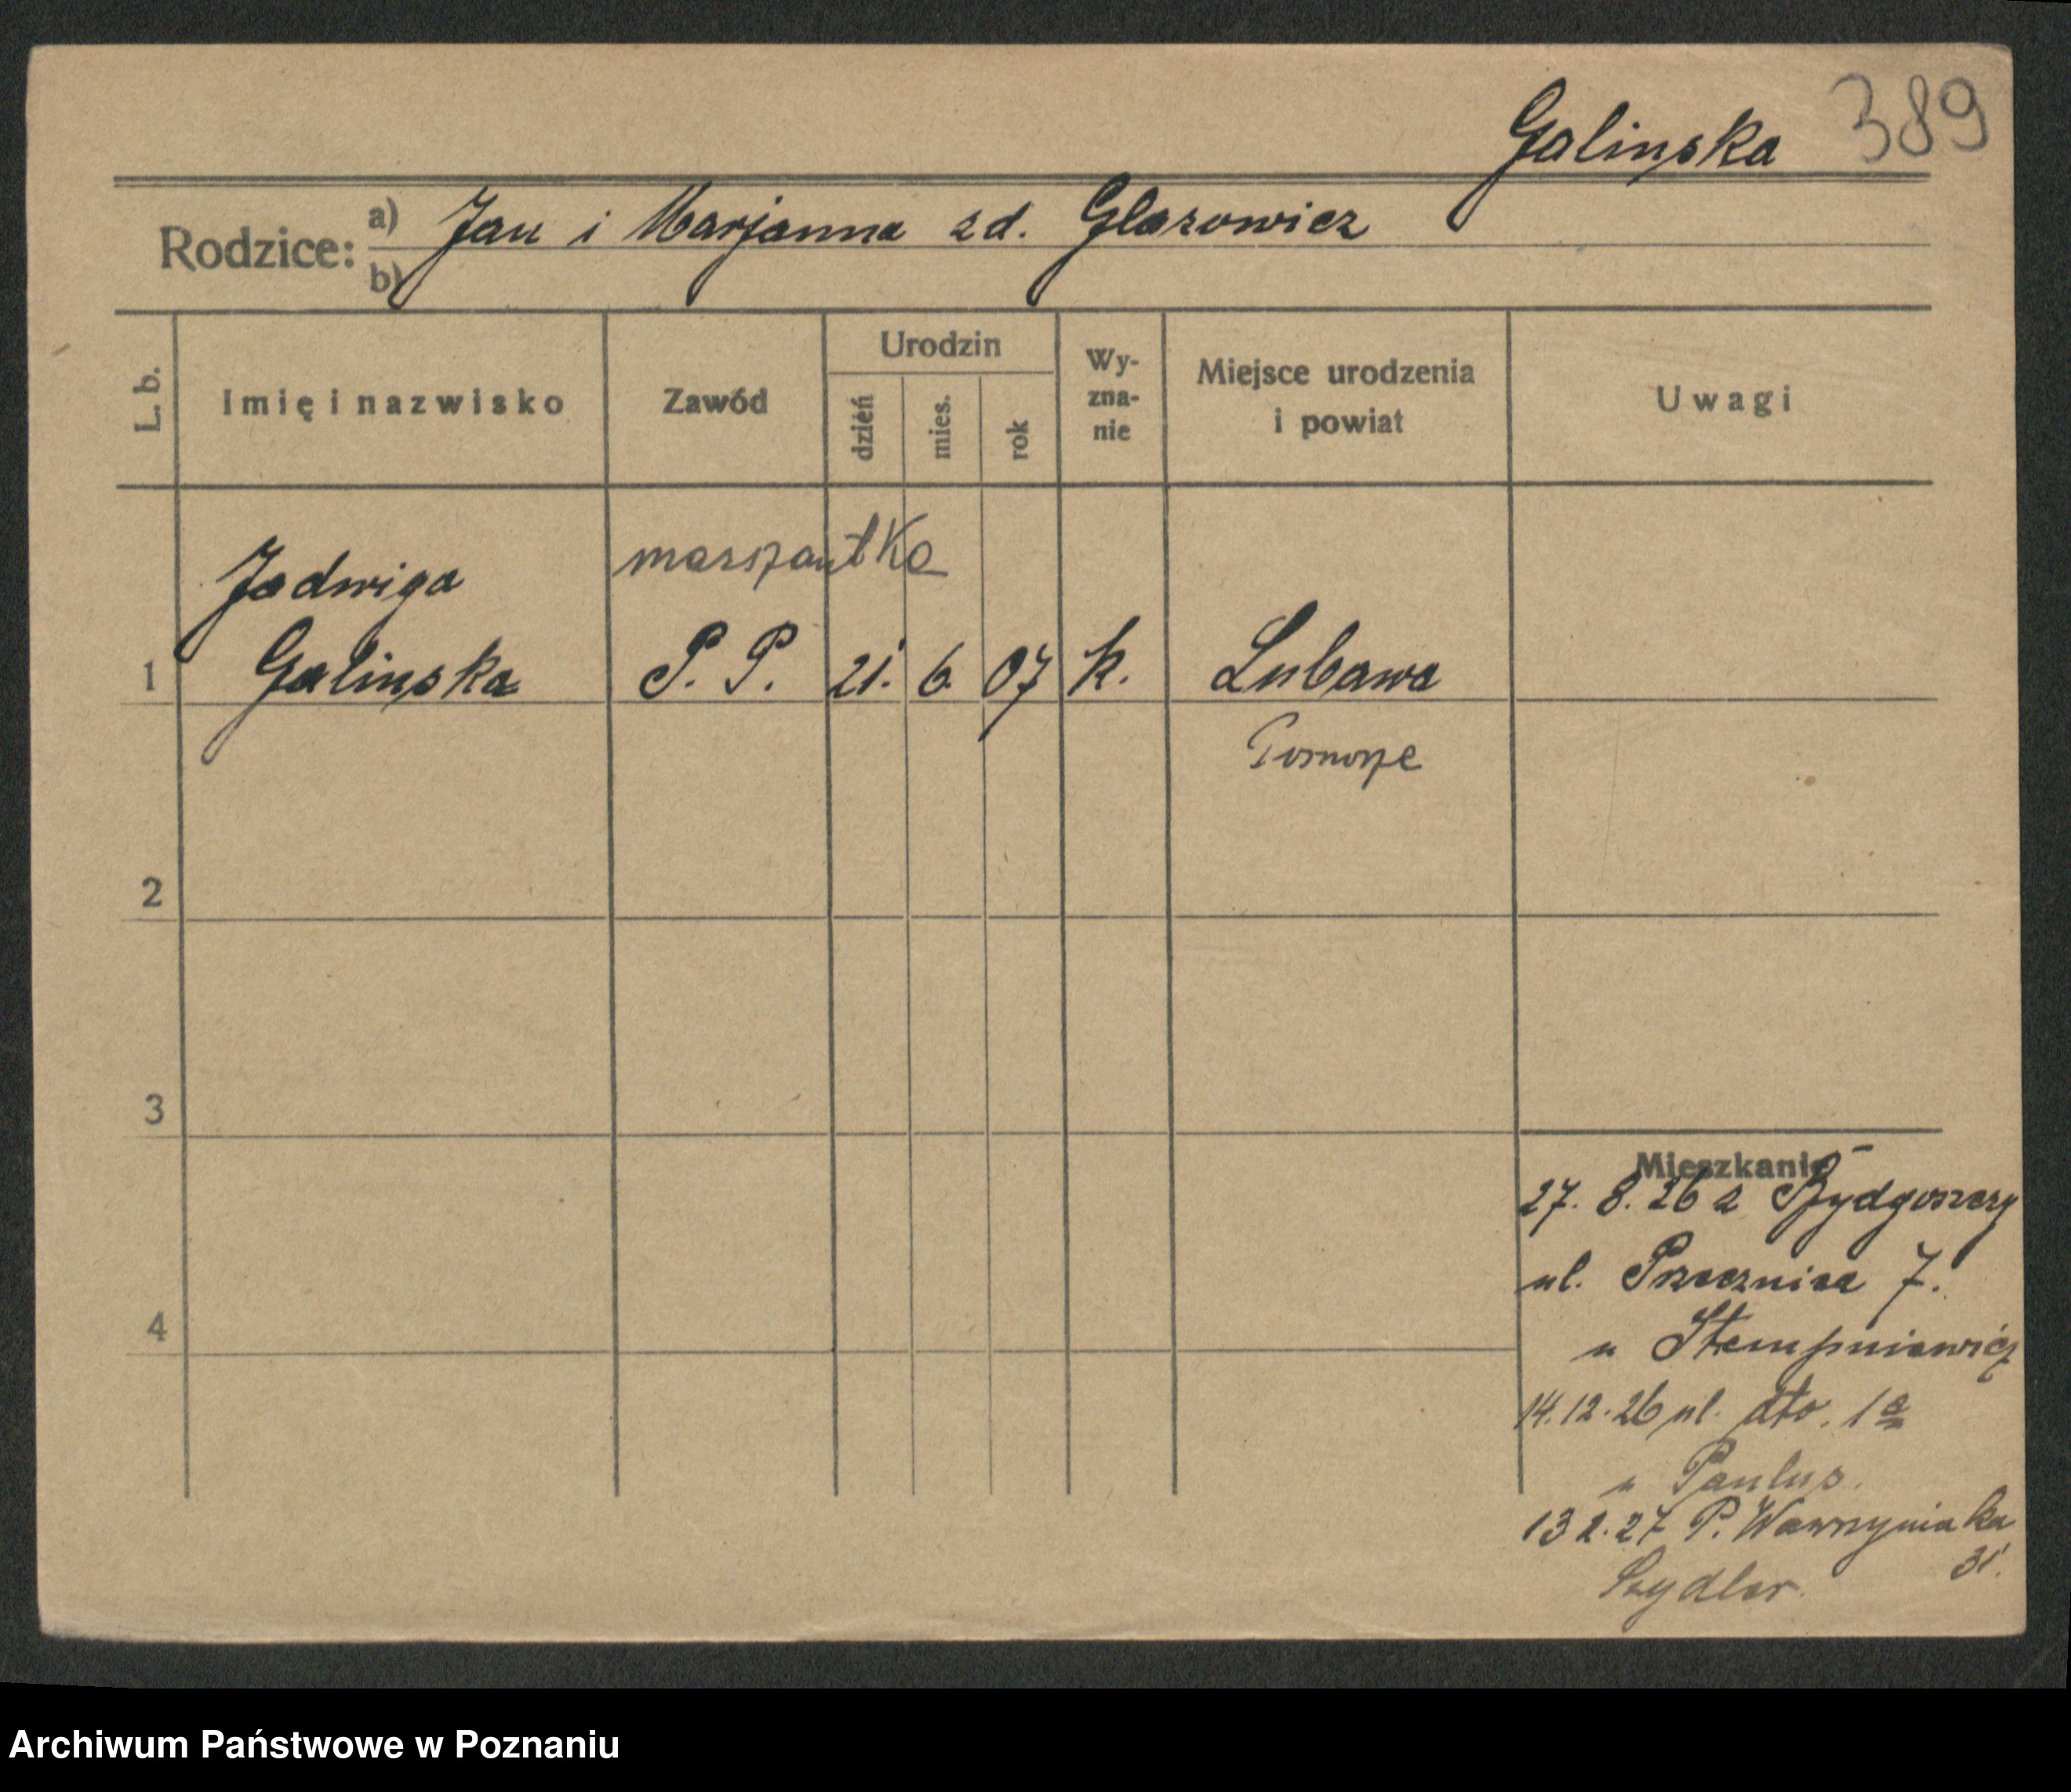 Galinska 389
Rodzice: a) Jan i Marjanna zd. Glazowicz
b)
L. b.
Imię i nazwisko
Zawód
Urodzin
dzień
mies.
rok
Wy-
zna-
nie
Miejsce urodzenia
i powiat
Uwagi
marszantka
Jadwiga
1 Galinska P. P. 21. 6. 07 k. Lubawa
Pomorze
2
3
Mieszkanie
27. 8. 26 z Bydgoszczy
ul. Przecznica 7.
4
u Stempniewicz
14.12.26 ul. dto. 1a
u Paulus.
13 2.27 P. Wawrzyniaka
31.
Szydlar.
Archiwum Państwowe w Poznaniu